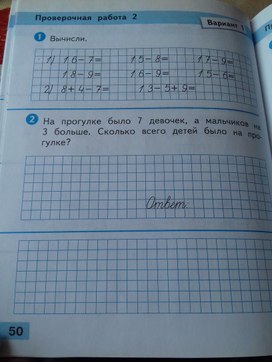 Проверочная работа 2
Вариант 1
1 Вычисли.
1) 16-7= 15-8= 17-9=
18-9= 16-9= 15-6=
2) 8+4-7= 13-5+9=
2 На прогулке было 7 девочек, а мальчиков на
3 больше. Сколько всего детей было на про-
гулке?
Ответ:
50